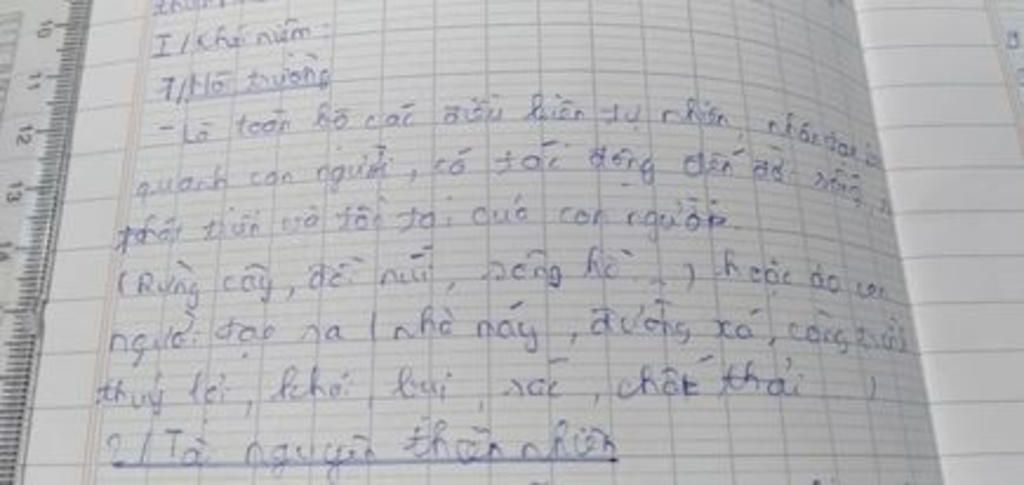 I/ Khái niệm:
1/ Môi trường
- Là toàn bộ các điều kiện tự nhiên, nhân tạo
quanh con người, có tác động đến đời sống,
phát triển và tồn tại của con người.
(Rừng cây, đồi núi, sông hồ...) hoặc do con
người tạo ra (nhà máy, đường xá, công trình
thuỷ lợi, khói bụi, rác, chất thải )
2/ Tài nguyên thiên nhiên